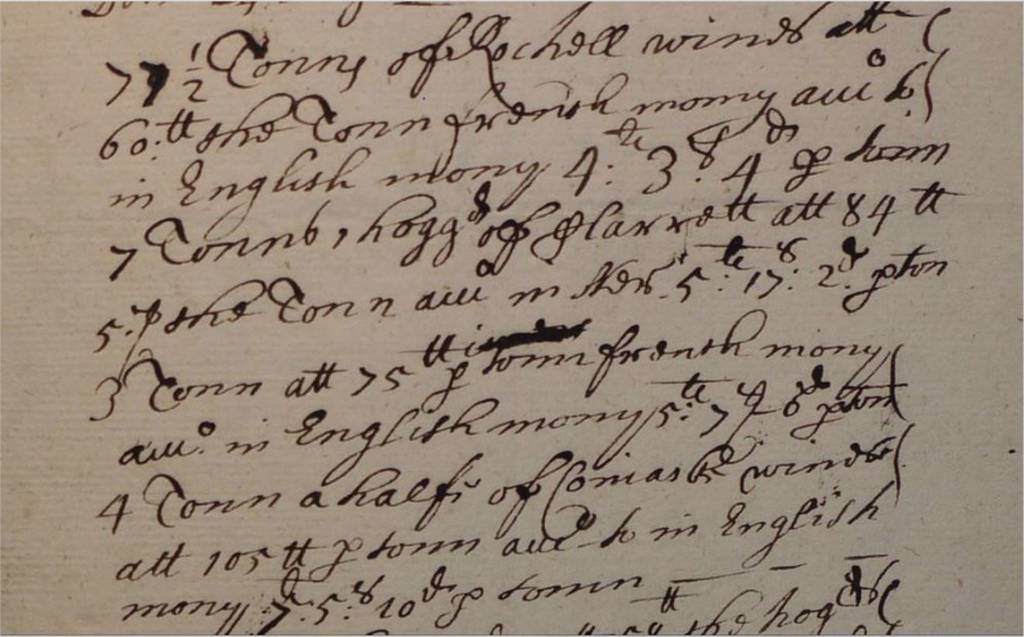 77 ½ Tonns of Rochell winds att
60:tt the Tonn french mony
in English mony 4:te 3:s 4d p tonn
7 Tonns 1 hoggd of Clarrett att 84 tt
5:p the Tonn in 5:te 17:s 2:d p ton
3 Tonn att 75 tt p tonn french mony
in English mony 5:te 7s 8d p ton
4 Tonn a halfe of winds
att 105 tt p tonn to in English
mony 7: 5:s 10d p tonn
tt the